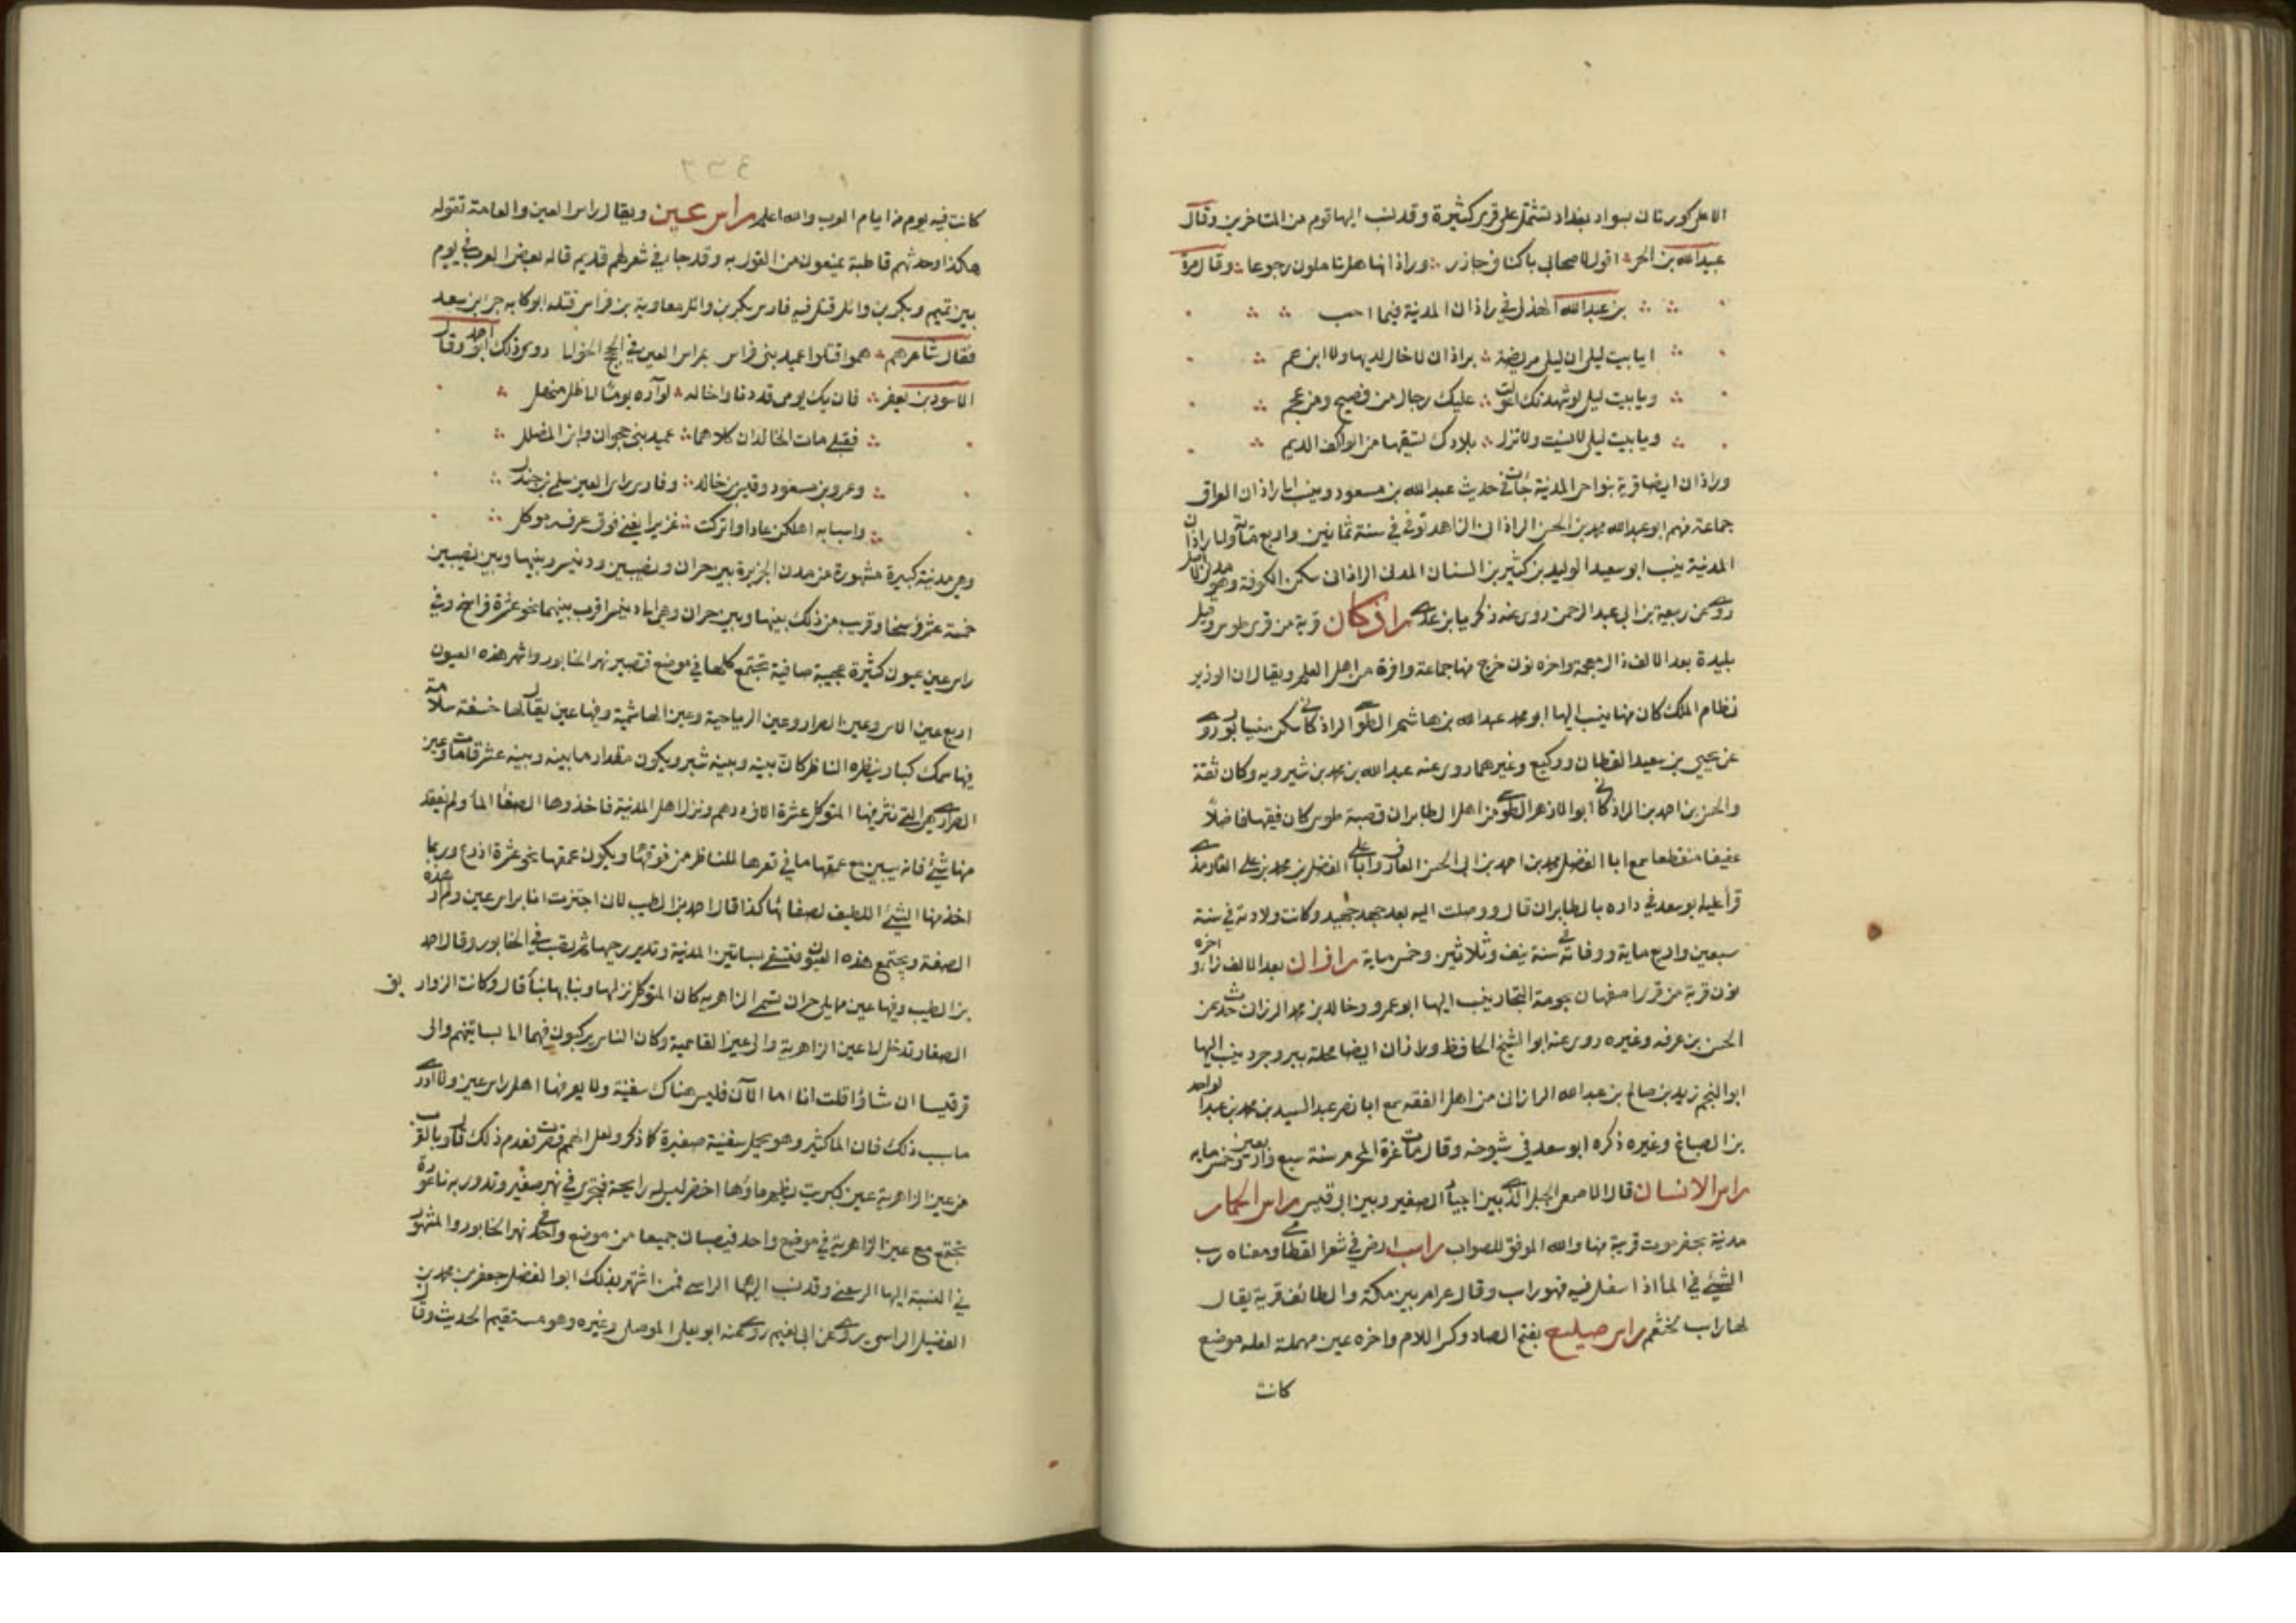 الاعلى كورتان بسواد بغداد تشتمل على قرى كثيرة وقد نسب اليها قوم من المتاخرين وقال
عبيد الله بن الحر اقول لاصحابي باكناف جازر وراذانها هل تاملون رجوعا وقال مرة
بن عبد الله الهذلي في راذان المدينة فيما احسب
ايا بيت ليلى ان ليلى مريضة براذان لا خال لديها ولا ابن عم
ويا بيت ليلى لو شهدتك اعولت عليك رجال من فصيح ومن عجم
ويا بيت ليلى لا يبست ولا تزل بلادك تسقيها من الواكف الديم
وراذان ايضا قرية بنواحي المدينة جات في حديث عبد الله بن مسعود وينسب الى راذان العراق
جماعة منهم ابو عبد الله محمد بن الحسن الراذاني الزاهد توفي في سنة ثمانين واربع مائة واما راذان
المدينة ينسب ابو سعيد الوليد بن كثير بن السنان المدني الراذاني سكن الكوفة وهو مدني الاصل
روى عن ربيعة بن ابي عبد الرحمن روى عنه زكريا بن عدي راذكان قرية من قرى طوس وقيل
بليدة بعد الالف ذال معجمة واخره نون خرج منها جماعة وافرة من اهل العلم ويقال ان الوزير
نظام الملك كان منها ينسب اليها ابو محمد عبد الله بن هاشم الطوسي الراذكاني سكن نيسابور روى
عن يحيى بن سعيد القطان ووكيع وغيرهما روى عنه عبد الله بن محمد بن شيرويه وكان ثقة
والحسن بن احمد بن الراذكاني ابو الازهر الطوسي من اهل الطابران قصبة طوس كان فقيها فاضلا
عفيفا منقطعا سمع ابا الفضل محمد بن احمد بن ابي الحسن العارف وابا علي الفضل بن محمد بن علي الفارمذي
قرأ عليه ابو سعد في داره بالطابران قال ووصلت اليه بعد جهد جهيد وكانت ولادته في سنة
سبعين واربع ماية ووفاته في سنة نيف وثلاثين وخمس ماية راذان بعد الالف زاي واخره
نون قرية من قرى اصفهان بحومة التجار ينسب اليها ابو عمرو وخالد بن محمد الرازاني حدث عن
الحسن بن عرفه وغيره روى عنه ابو الشيخ الحافظ وراذان ايضا محلة ببروجرد ينسب اليها
ابو النجم زيد بن صالح بن عبد الله الرازاني من اهل الفقه سمع ابا نصر عبد السيد بن محمد بن عبد الواحد
بن الصباغ وغيره ذكره ابو سعد في شيوخه وقال مات غرة المحرم سنة سبع واربعين وخمس مايه
راس الانسان قال الاصمعي الجبل الذي بين اجياد الصغير وبين ابي قبيس راس الحمار
مدينة بحضرموت قريبة منها والله الموفق للصواب راسب ارض في شعر القطامي ومعناه رسب
الشيئ في الماء اذا سفل فيه فهو راسب وقال عرام بين مكة والطائف قرية يقال
لها راسب لخثعم راس صليع بفتح الصاد وكسر اللام واخره عين مهملة لعله موضع
كانت
كانت فيه يوم من ايام العرب والله اعلم راس عين ويقال راس العين والعامة تقوله
هكذا وجدتهم قاطبة يمنعون من القول به وقد جا في شعر لهم قديم قاله بعض العرب في يوم
بين تميم وبكر بن وائل قتل فيه فارس بكر بن وائل معاوية بن فراس قتله ابو كابه جر بن سعد
فقال شاعرهم هموا قتلوا عميد بني فراس براس العين في الحج الخوالي روى ذلك ابو احمد وقال
الاسود بن يعفر فان يك يومي قد دنا واخاله لوارده يوما الى ظل منهل
فقبلي مات الخالدان كلاهما عميد بني جحوان وابن المضلل
وعمرو بن مسعود وقيس بن خالد وفارس راس العين سلمى بن جندل
واسبابه اهلكن عادا وانزلت عزيرا يغني فوق غرفة موكل
وهي مدينة كبيرة مشهورة من مدن الجزيرة بين حران ونصيبين ودنيسر وبينها وبين نصيبين
خمسة عشر فرسخا وقريب من ذلك بينها وبين حران وهي الى دنيسر اقرب بينهما نحو عشرة فراسخ وفي
راس عين عيون كثيرة عجيبة صافية تجتمع كلها في موضع فتصير نهر الخابور واشهر هذه العيون
اربع عين الاس وعين الصرار وعين الرياحية وعين الهاشمية وفيها عين يقال لها خسفة سلامة
فيها سمك كبار ينظره الناظر كان بينه وبينه شبر ويكون مقدار ما بينه وبينه عشر قامات وعين
الصرار هي التي نثر فيها المتوكل عشرة الاف درهم ونزل اهل المدينة فاخذوها لصفاء الماء ولم يفقد
منها شيئ فانه يبين مع عمقها ما في قعرها للناظر من فوقها ويكون عمقها نحو عشرة اذرع وربما
اخذ منها الشيئ اللطيف لصفائها كذا قال احمد بن الطيب لان اجتزت انا براس عين ولم ار هذه
الصفة ويجتمع هذه العيون فتسقي بساتين المدينة وتدير رحيها ثم تصب في الخابور وقال احمد
بن الطيب وفيها عين مما يلي حران تسمى الزاهرية كان المتوكل نزلها وبنا بها بناء قال وكانت الزواريق
الصغار تدخل الى عين الزاهرية والى عين الهاشمية وكان الناس يركبون فيها الى بساتينهم والى
قرقيسا ان شاؤا قلت انا اما الآن فليس هناك سفينة ولا يعرفها اهل راس عين ولا ادري
ما سبب ذلك فان الماء كثير وهو يحمل سفينة صغيرة كما ذكر ولعل الهمم قصرت فعدم ذلك قال وبالقرب
من عين الزاهرية عين كبريت يظهر ماؤها اخضر ليس له رايحة فيجري في نهر صغير وتدور به ناعورة
تجتمع مع عين الزاهرية في موضع واحد فيصبان جميعا من موضع واحد في نهر الخابور والمشهور
في النسبة اليها الرسعني وقد نسب اليها الراسي فمن اشتهر بذلك ابو الفضل جعفر بن محمد بن
الفضل الراسي يروي عن ابي نعيم روى عنه ابو يعلى الموصلي وغيره وهو مستقيم الحديث وقال